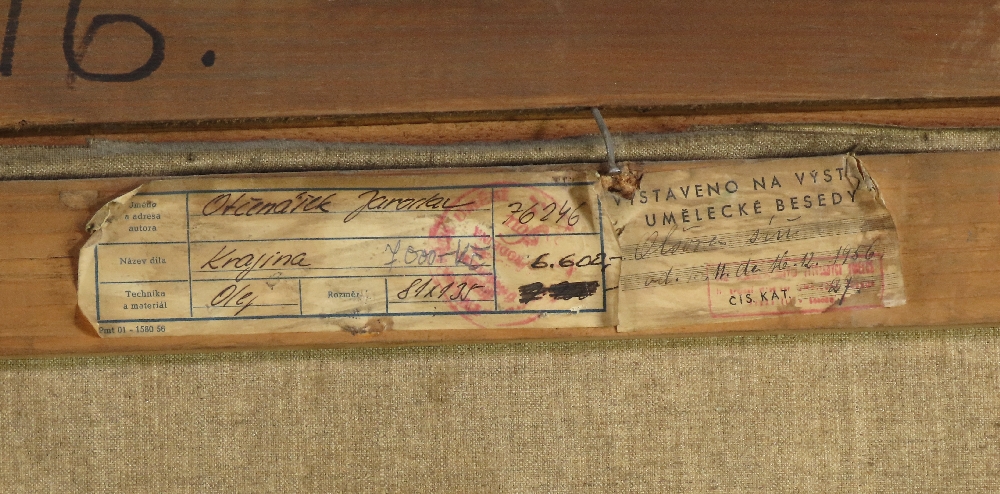 16.
Jméno
a adresa
autora
Otčenášek Jaroslav
76246
Název díla
Krajina
7.000-Kčs
6.608,-
Technika
a materiál
Olej
Rozměr
81x135
Pmt 01 - 1580 56
VYSTAVENO NA VÝST.
UMĚLECKÉ BESEDY
síň
od. 11. do 16.12. 1956
ČÍS. KAT. 27